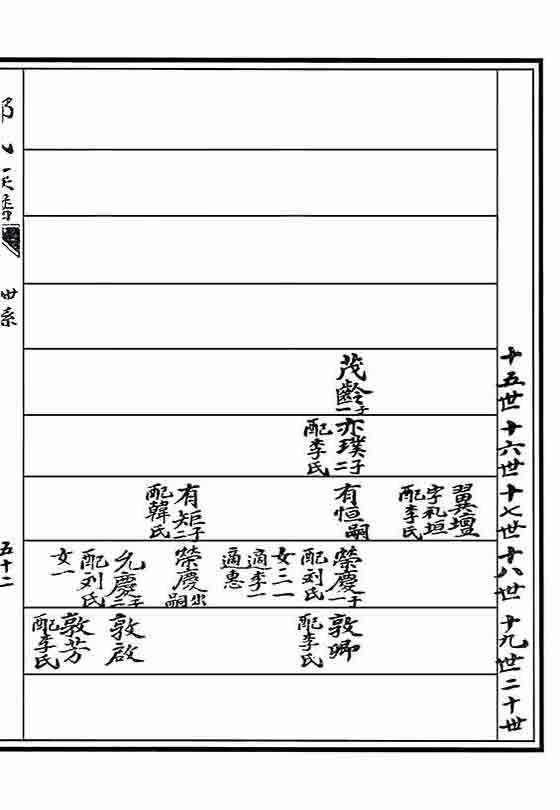 十五世
十六世
十七世
十八世
十九世
二十世
茂齡一子
亦璞二子
配李氏
翼壇
字礼垣
配李氏
有恒嗣
有矩二子
配韓氏
榮慶一子
配刘氏
女三一
適李一
適惠
榮慶出嗣
允慶二子
配刘氏
女一
敦卿
配李氏
敦啟
敦芳
配李氏
世系
五十二